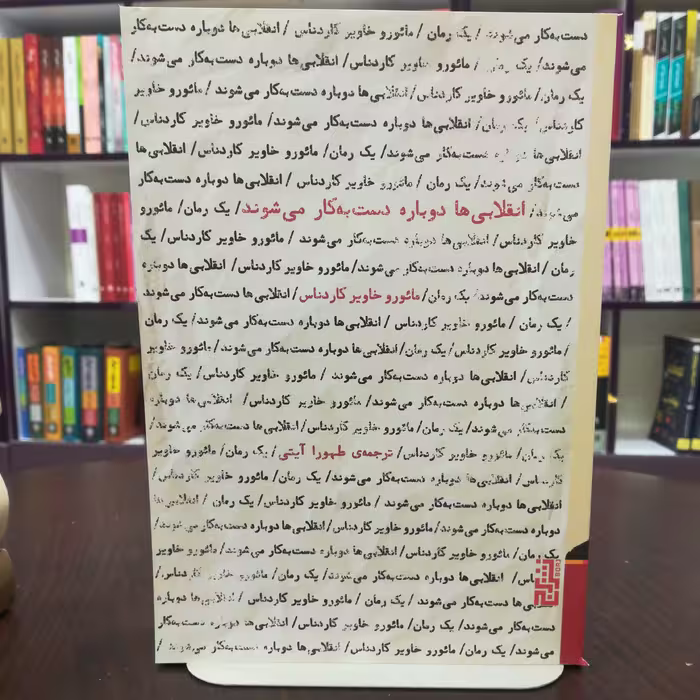 دست‌به‌کار می‌شوند / یک رمان / مائورو خاویر کاردناس / انقلابی‌ها دوباره دست‌به‌کار
می‌شوند / یک رمان / مائورو خاویر کاردناس / انقلابی‌ها دوباره دست‌به‌کار می‌شوند /
یک رمان / مائورو خاویر کاردناس / انقلابی‌ها دوباره دست‌به‌کار می‌شوند / مائورو خاویر
کاردناس / یک رمان / انقلابی‌ها دوباره دست‌به‌کار می‌شوند / مائورو خاویر کاردناس /
انقلابی‌ها دوباره دست‌به‌کار می‌شوند / یک رمان / مائورو خاویر کاردناس / انقلابی‌ها
دوباره دست‌به‌کار می‌شوند / یک رمان / مائورو خاویر کاردناس / انقلابی‌ها دوباره دست‌به‌کار
می‌شوند / انقلابی‌ها دوباره دست‌به‌کار می‌شوند / یک رمان / مائورو
خاویر کاردناس / انقلابی‌ها دوباره دست‌به‌کار می‌شوند / مائورو خاویر کاردناس / یک
رمان / انقلابی‌ها دوباره دست‌به‌کار می‌شوند / مائورو خاویر کاردناس / انقلابی‌ها دوباره
دست‌به‌کار می‌شوند / یک رمان / مائورو خاویر کاردناس / انقلابی‌ها دوباره دست‌به‌کار می‌شوند
/ یک رمان / مائورو خاویر کاردناس / انقلابی‌ها دوباره دست‌به‌کار می‌شوند / یک رمان
/ مائورو خاویر کاردناس / یک رمان / انقلابی‌ها دوباره دست‌به‌کار می‌شوند / مائورو خاویر
کاردناس / انقلابی‌ها دوباره دست‌به‌کار می‌شوند / مائورو خاویر کاردناس / یک رمان
/ انقلابی‌ها دوباره دست‌به‌کار می‌شوند / یک رمان / مائورو خاویر کاردناس / انقلابی‌ها دوباره
دست‌به‌کار می‌شوند / یک رمان / مائورو خاویر کاردناس / انقلابی‌ها دوباره دست‌به‌کار می‌شوند /
یک رمان / مائورو خاویر کاردناس / ترجمه‌ی طهورا آیتی / یک رمان / مائورو خاویر
کاردناس / انقلابی‌ها دوباره دست‌به‌کار می‌شوند / یک رمان / مائورو خاویر کاردناس /
انقلابی‌ها دوباره دست‌به‌کار می‌شوند / مائورو خاویر کاردناس / یک رمان / انقلابی‌ها
دوباره دست‌به‌کار می‌شوند / مائورو خاویر کاردناس / انقلابی‌ها دوباره دست‌به‌کار می‌شوند /
یک رمان / مائورو خاویر کاردناس / انقلابی‌ها دوباره دست‌به‌کار می‌شوند / مائورو خاویر
/ انقلابی‌ها دوباره دست‌به‌کار می‌شوند / یک رمان / مائورو خاویر کاردناس /
دست‌به‌کار می‌شوند / یک رمان / مائورو خاویر کاردناس / انقلابی‌ها دوباره
دست‌به‌کار می‌شوند / یک رمان / مائورو خاویر کاردناس / انقلابی‌ها دوباره دست‌به‌کار
می‌شوند / یک رمان / مائورو خاویر کاردناس / انقلابی‌ها دوباره دست‌به‌کار می‌شوند /